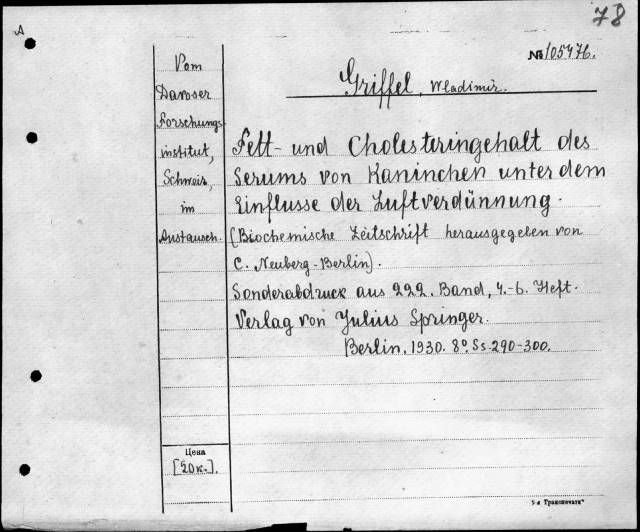 78
A
№ 105476.
Griffel, Wladimir.
Vom
Davoser
Forschungs-
institut,
Schweiz,
im
Austausch.
Fett- und Cholesteringehalt des
Serums von Kaninchen unter dem
Einflusse der Luftverdünnung.
(Biochemische Zeitschrift herausgegeben von
C. Neuberg-Berlin).
Sonderabdruck aus 222. Band, 4.-6. Heft.
Verlag von Julius Springer.
Berlin. 1930. 8° Ss. 290-300.
Цена
[20к.].
5-я Транспечати"